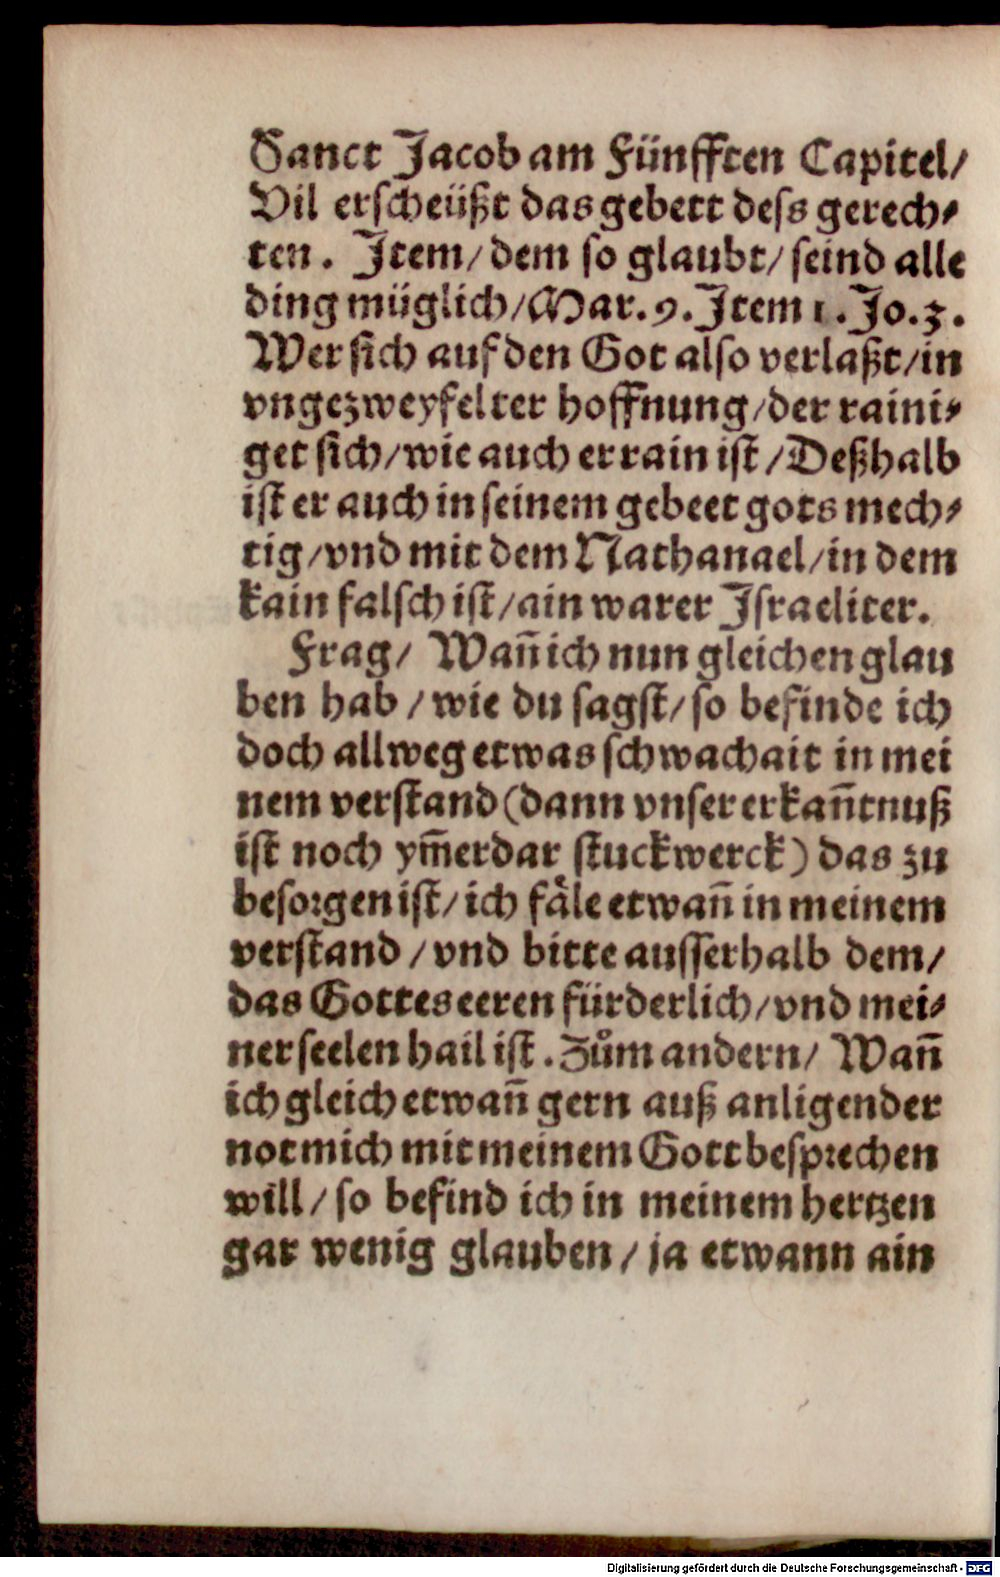 Sanct Jacob am Fünfften Capitel/
Vil erscheüßt das gebett dess gerech⸗
ten. Item/ dem so glaubt/ seind alle
ding müglich/ Mar. 9. Item 1. Jo. 3.
Wer sich auf den Got also verlaßt/ in
vngezweyfelter hoffnung/ der raini⸗
get sich/ wie auch er rain ist/ Deßhalb
ist er auch in seinem gebeet gots mech⸗
tig/ vnd mit dem Nathanael/ in dem
kain falsch ist/ ain warer Israeliter.
Frag/ Wañ ich nun gleichen glau
ben hab/ wie du sagst/ so befinde ich
doch allweg etwas schwachait in mei
nem verstand (dann vnser erkañtnuß
ist noch ym̃erdar stuckwerck) das zu
besorgen ist/ ich fäle etwañ in meinem
verstand/ vnd bitte ausserhalb dem/
das Gottes eeren fürderlich/ vnd mei⸗
ner seelen hail ist. Zům andern/ Wañ
ich gleich etwañ gern auß anligender
not mich mit meinem Gott besprechen
will/ so befind ich in meinem hertzen
gar wenig glauben/ ja etwann ain
Digitalisierung gefördert durch die Deutsche Forschungsgemeinschaft - DFG